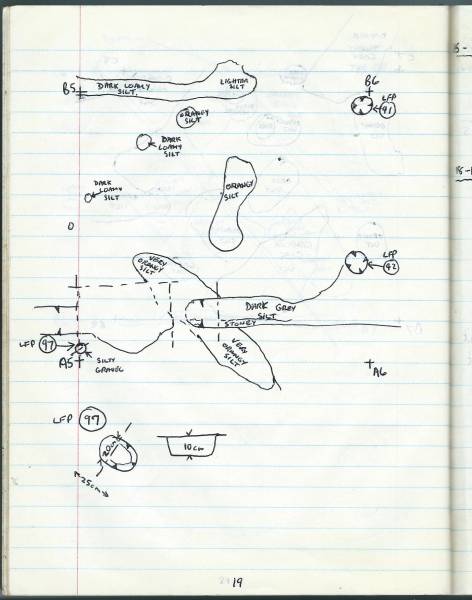 B5
DARK LOAMY
SILT.
LIGHTER
SILT
B6
LFP
91
ORANGY
SILT
DARK
LOAMY
SILT
DARK
LOAMY
SILT
ORANGY
SILT
O
VERY
ORANGY SILT
LFP
92
DARK GREY
SILT
STONEY
LFP 97
A5
SILTY
GRAVEL
VERY
ORANGY
SILT
A6
LFP 97
20cm
25cm
10cm
19